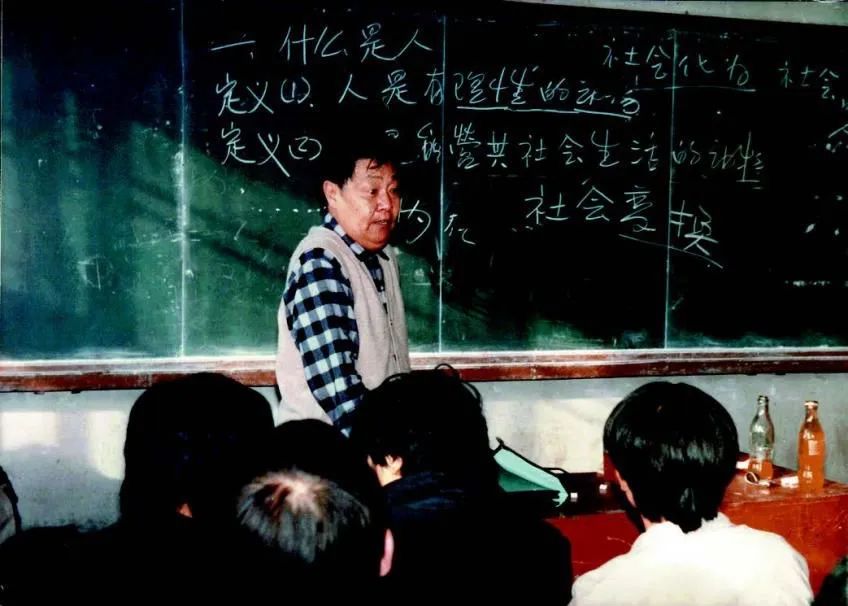 一、什么是人
社会化为 社会
定义(1)、人是有理性的动物
定义(2) 营共社会生活的动物
为 社会变换